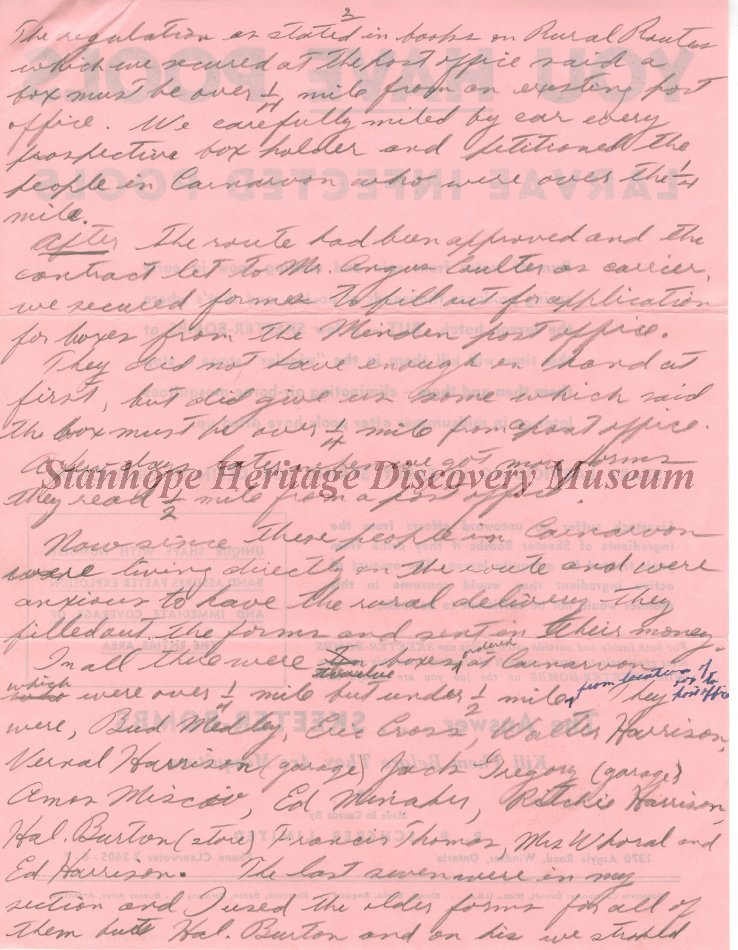 2
The regulation as stated in books on Rural Routes
which we secured at the post office said a
box must be over 1/4 mile from an existing post
office. We carefully miled by car every
prospective box holder and petitioned the
people in Carnarvon who were over the 1/4
mile.
After the route had been approved and the
contract let to Mr. Angus Coulter as carrier,
we secured forms to fill out for application
for boxes from the Minden post office.
They did not have enough on hand at
first, but did give us some which said
the box must be over 1/4 mile from a post office.
A few days later when we got more forms
Stanhope Heritage Discovery Museum
they read 1/2 mile from a post office.
Now since these people in Carnarvon
were living directly on the route and were
anxious to have the rural delivery they
filled out the forms and sent in their money.
In all there were twelve boxes ordered at Carnarvon
which were over 1/4 mile but under 1/2 mile from location of box to post office. They
were, Bud Medley, Eric Cross, Walter Harrison,
Vernal Harrison (garage) Jack Gregory (garage)
Amos Miscio, Ed Minaker, Ritchie Harrison,
Hal. Burton (store) Francis Thomas, Mrs Whoral and
Ed Harrison. The last seven were on my
section and I used the older forms for all of
them but Hal. Burton and on his we